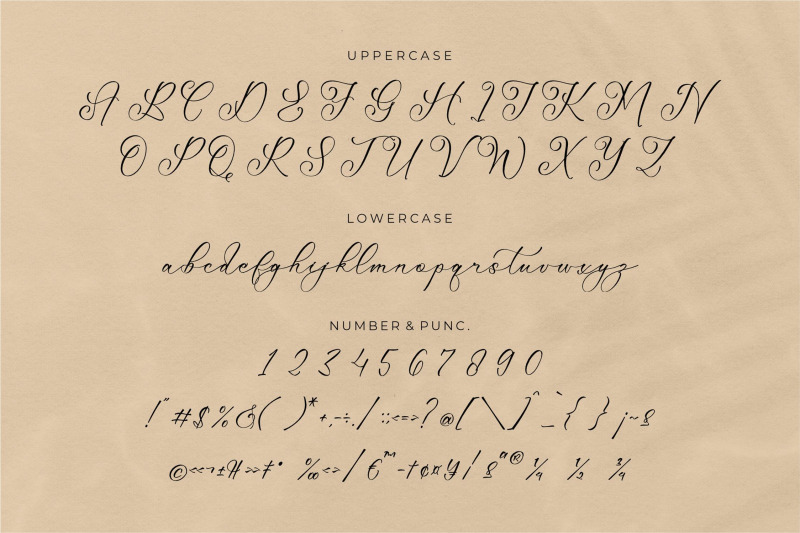 UPPERCASE
A B C D E F G H I J K M N
O P Q R S T U V W X Y Z
LOWERCASE
abcdefghijklmnopqrstuvwxyz
NUMBER & PUNC.
1 2 3 4 5 6 7 8 9 0
! " # $ % & ( ) * + , - ÷ . / : ; < = > ? @ [ \ ] ^ _ ` { } ¡ ~ §
© « ¬ ± » ‡ • ‰ ‹ › / € ™ – † ¢ ¤ ¥ ¦ § ª ® ¼ ½ ¾